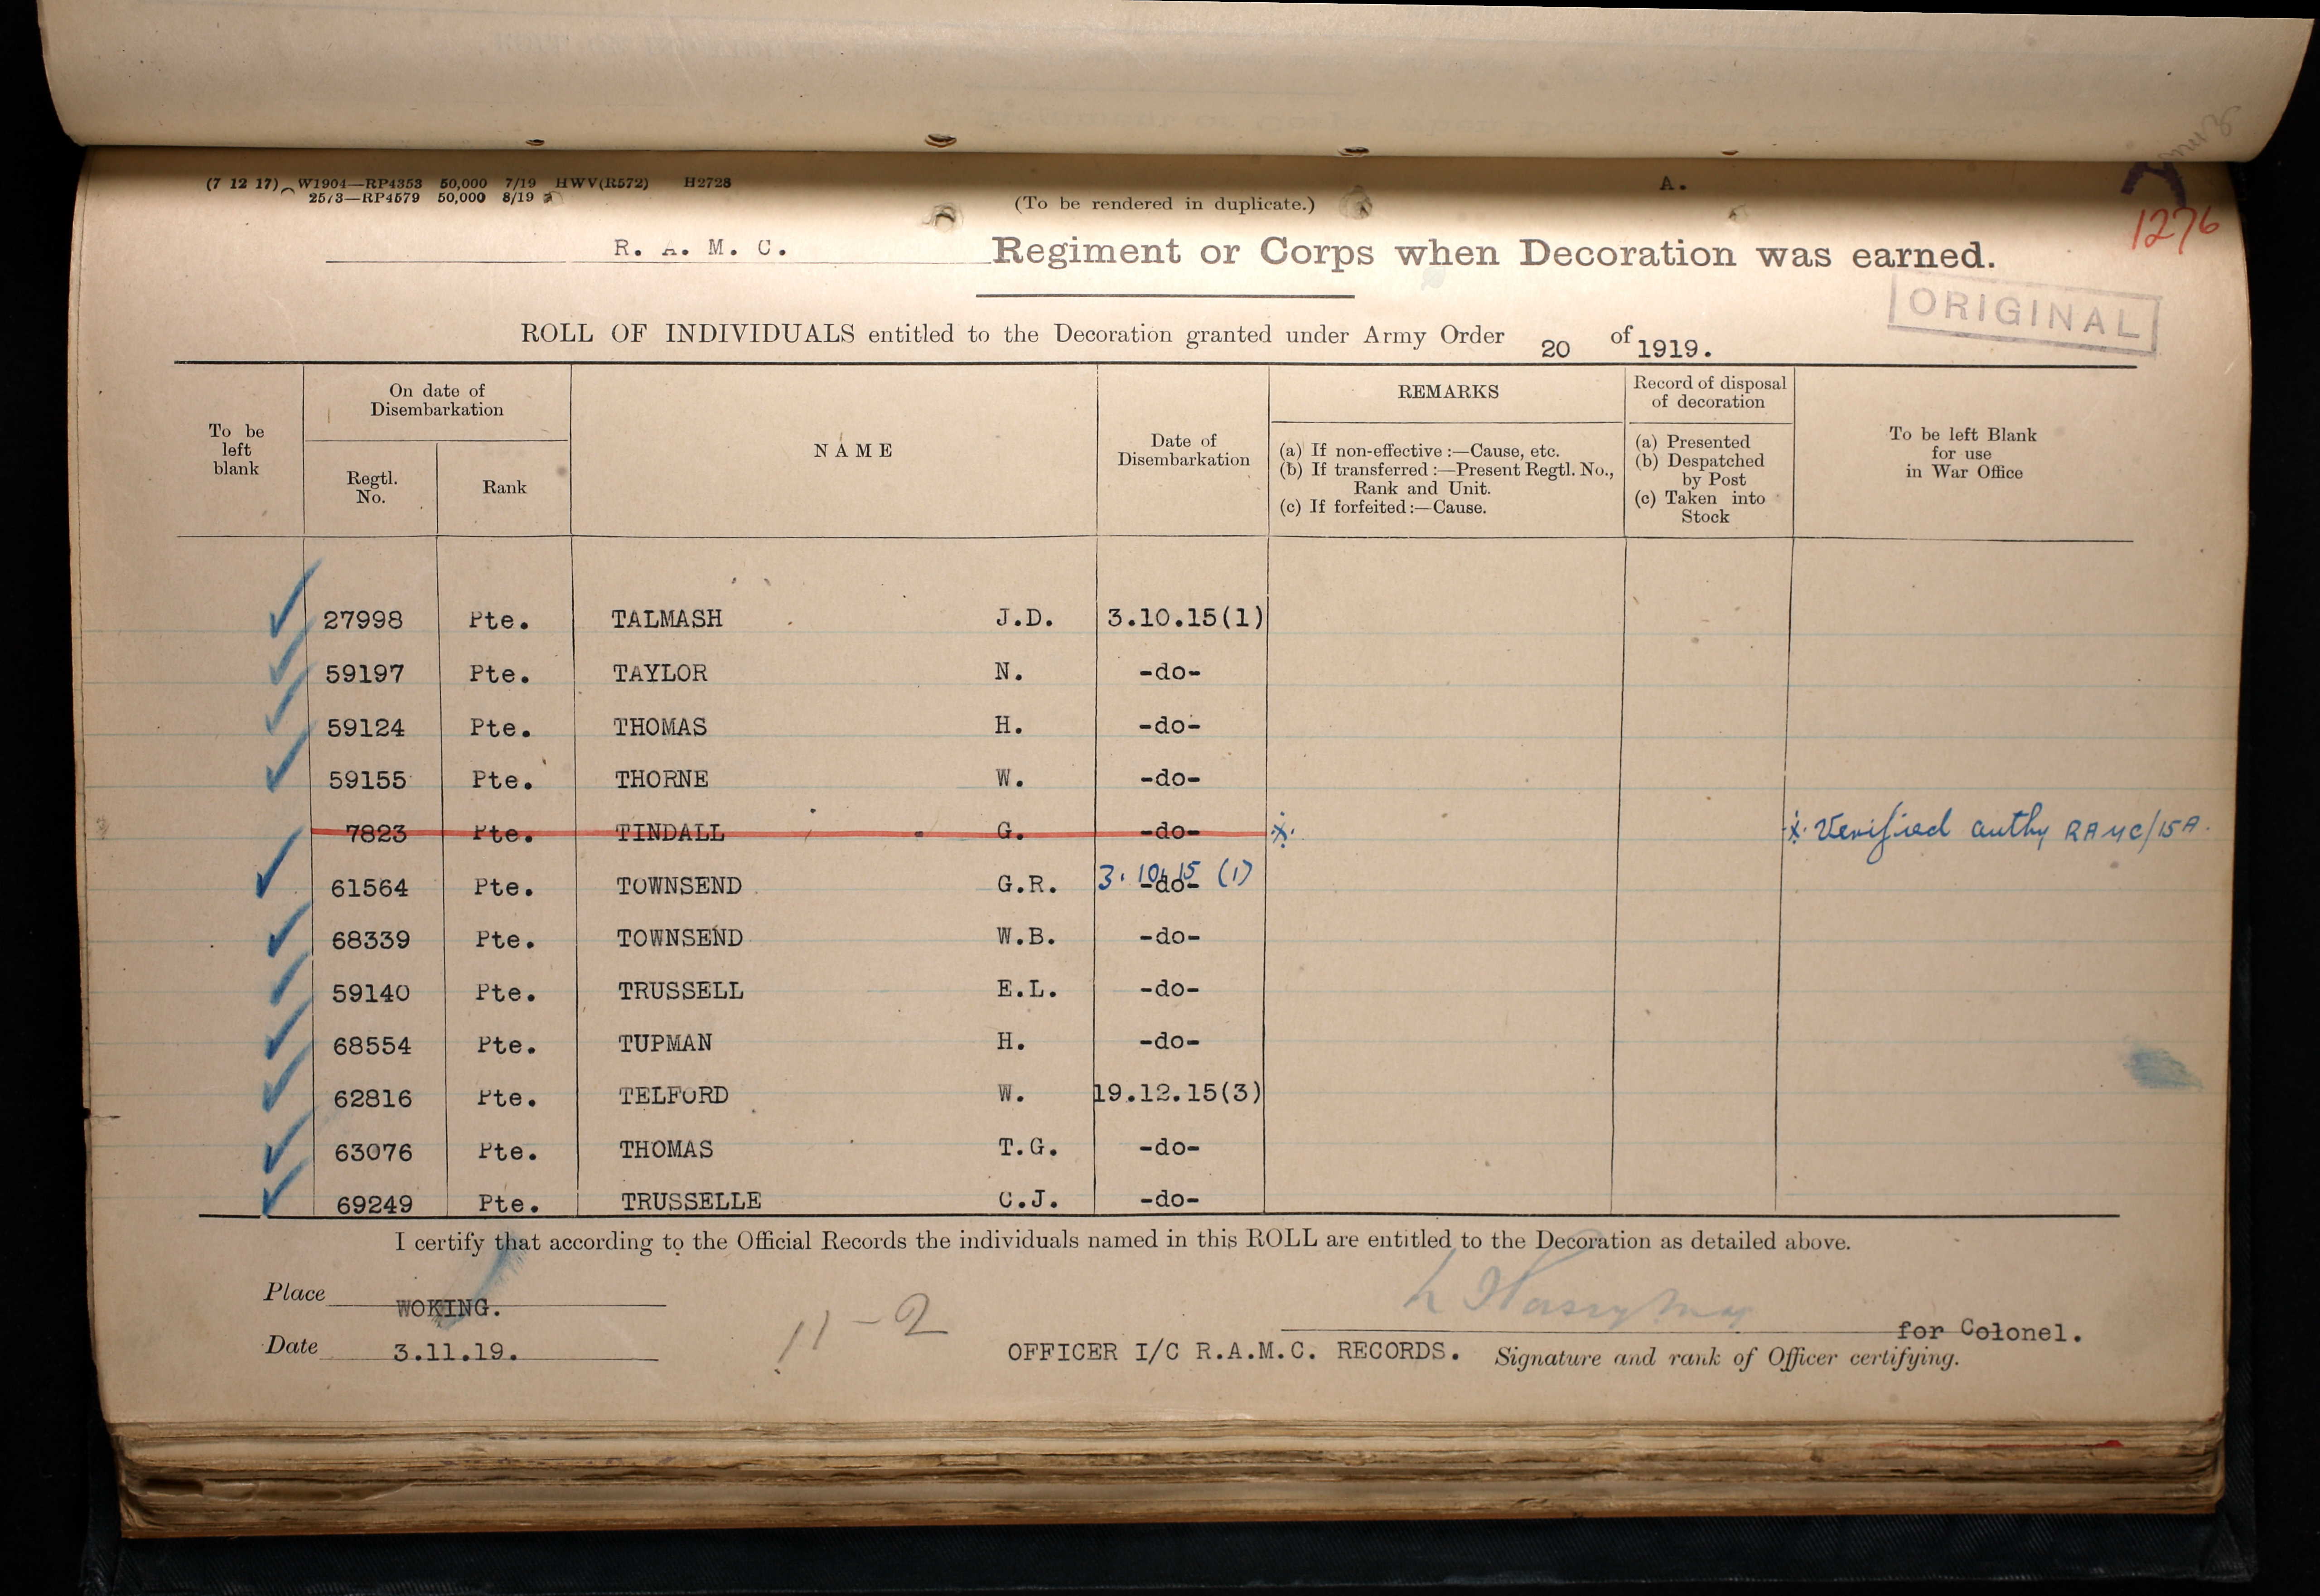 (7 12 17) W1904—RP4353 50,000 7/19 HWV(R572) H2728
2573—RP4579 50,000 8/19
A.
(To be rendered in duplicate.)
1276
R. A. M. C. Regiment or Corps when Decoration was earned.
ORIGINAL
ROLL OF INDIVIDUALS entitled to the Decoration granted under Army Order 20 of 1919.
To be left blank
On date of Disembarkation
Regtl. No.
Rank
NAME
Date of Disembarkation
REMARKS
(a) If non-effective :—Cause, etc.
(b) If transferred :—Present Regtl. No., Rank and Unit.
(c) If forfeited :—Cause.
Record of disposal of decoration
(a) Presented
(b) Despatched by Post
(c) Taken into Stock
To be left Blank for use in War Office
27998 Pte. TALMASH J.D. 3.10.15(1)
59197 Pte. TAYLOR N. -do-
59124 Pte. THOMAS H. -do-
59155 Pte. THORNE W. -do-
7823 Pte. TINDALL G. -do- Verified authy RAMC/15A.
61564 Pte. TOWNSEND G.R. -do- 3.10.15 (1)
68339 Pte. TOWNSEND W.B. -do-
59140 Pte. TRUSSELL E.L. -do-
68554 Pte. TUPMAN H. -do-
62816 Pte. TELFORD W. 19.12.15(3)
63076 Pte. THOMAS T.G. -do-
69249 Pte. TRUSSELLE C.J. -do-
I certify that according to the Official Records the individuals named in this ROLL are entitled to the Decoration as detailed above.
Place WOKING.
for Colonel.
Date 3.11.19.
11-2
OFFICER I/C R.A.M.C. RECORDS. Signature and rank of Officer certifying.